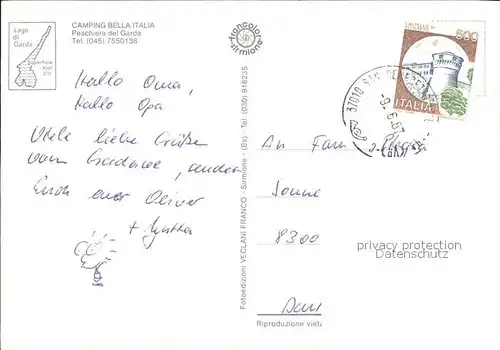 CAMPING BELLA ITALIA
Peschiera del Garda
Tel. (045) 7550138
Lago
di
Garda
francolor
sirmione
500
ITALIA
37010 SAN BENEDETTO
Hallo Oma,
Hallo Opa
Viele liebe Grüße
vom Gardasee, senden
Euch euer Oliver
+ Jutta
Fotoedizioni VECLANI FRANCO - Sirmione - (Bs) - Tel. (030) 916235
Riproduzione vieta
An Fam
Sonne
8300
privacy protection
Datenschutz